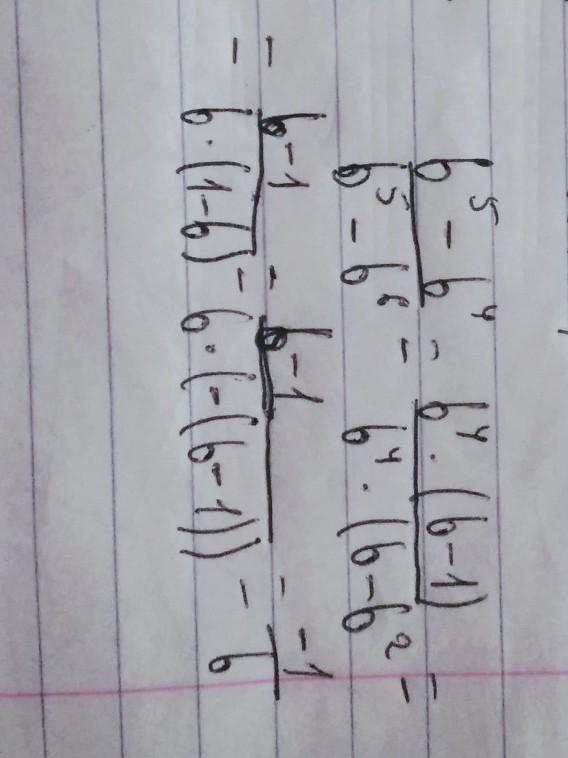 b⁵ - b⁴ / b⁵ - b⁶ = b⁴ · (b-1) / b⁴ · (b-b² =
= b-1 / b · (1-b) = b-1 / b · (-(b-1)) = -1 / b